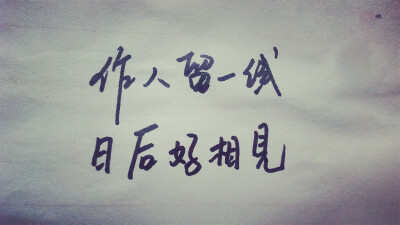 作人留一线
日后好相見